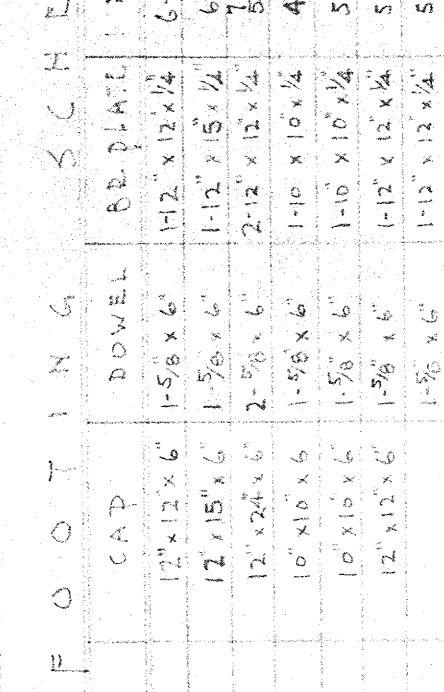 FOOTING SCHE
CAP DOWEL BR. PLATE
12" x 12" x 6" 1-5/8" x 6" 1-12" x 12" x 1/4" 6
12" x 15" x 6" 1-5/8" x 6" 1-12" x 15" x 1/4" 6
12" x 24" x 6" 2-5/8" x 6" 2-12" x 12" x 1/4" 5
10" x 10" x 6 1-5/8" x 6" 1-10 x 10" x 1/4 4
10" x 10" x 6" 1-5/8" x 6" 1-10" x 10" x 1/4" 5
12" x 12" x 6" 1-5/8" x 6" 1-12" x 12" x 1/4" 5
1-5/8" x 6" 1-12" x 12" x 1/4" 5